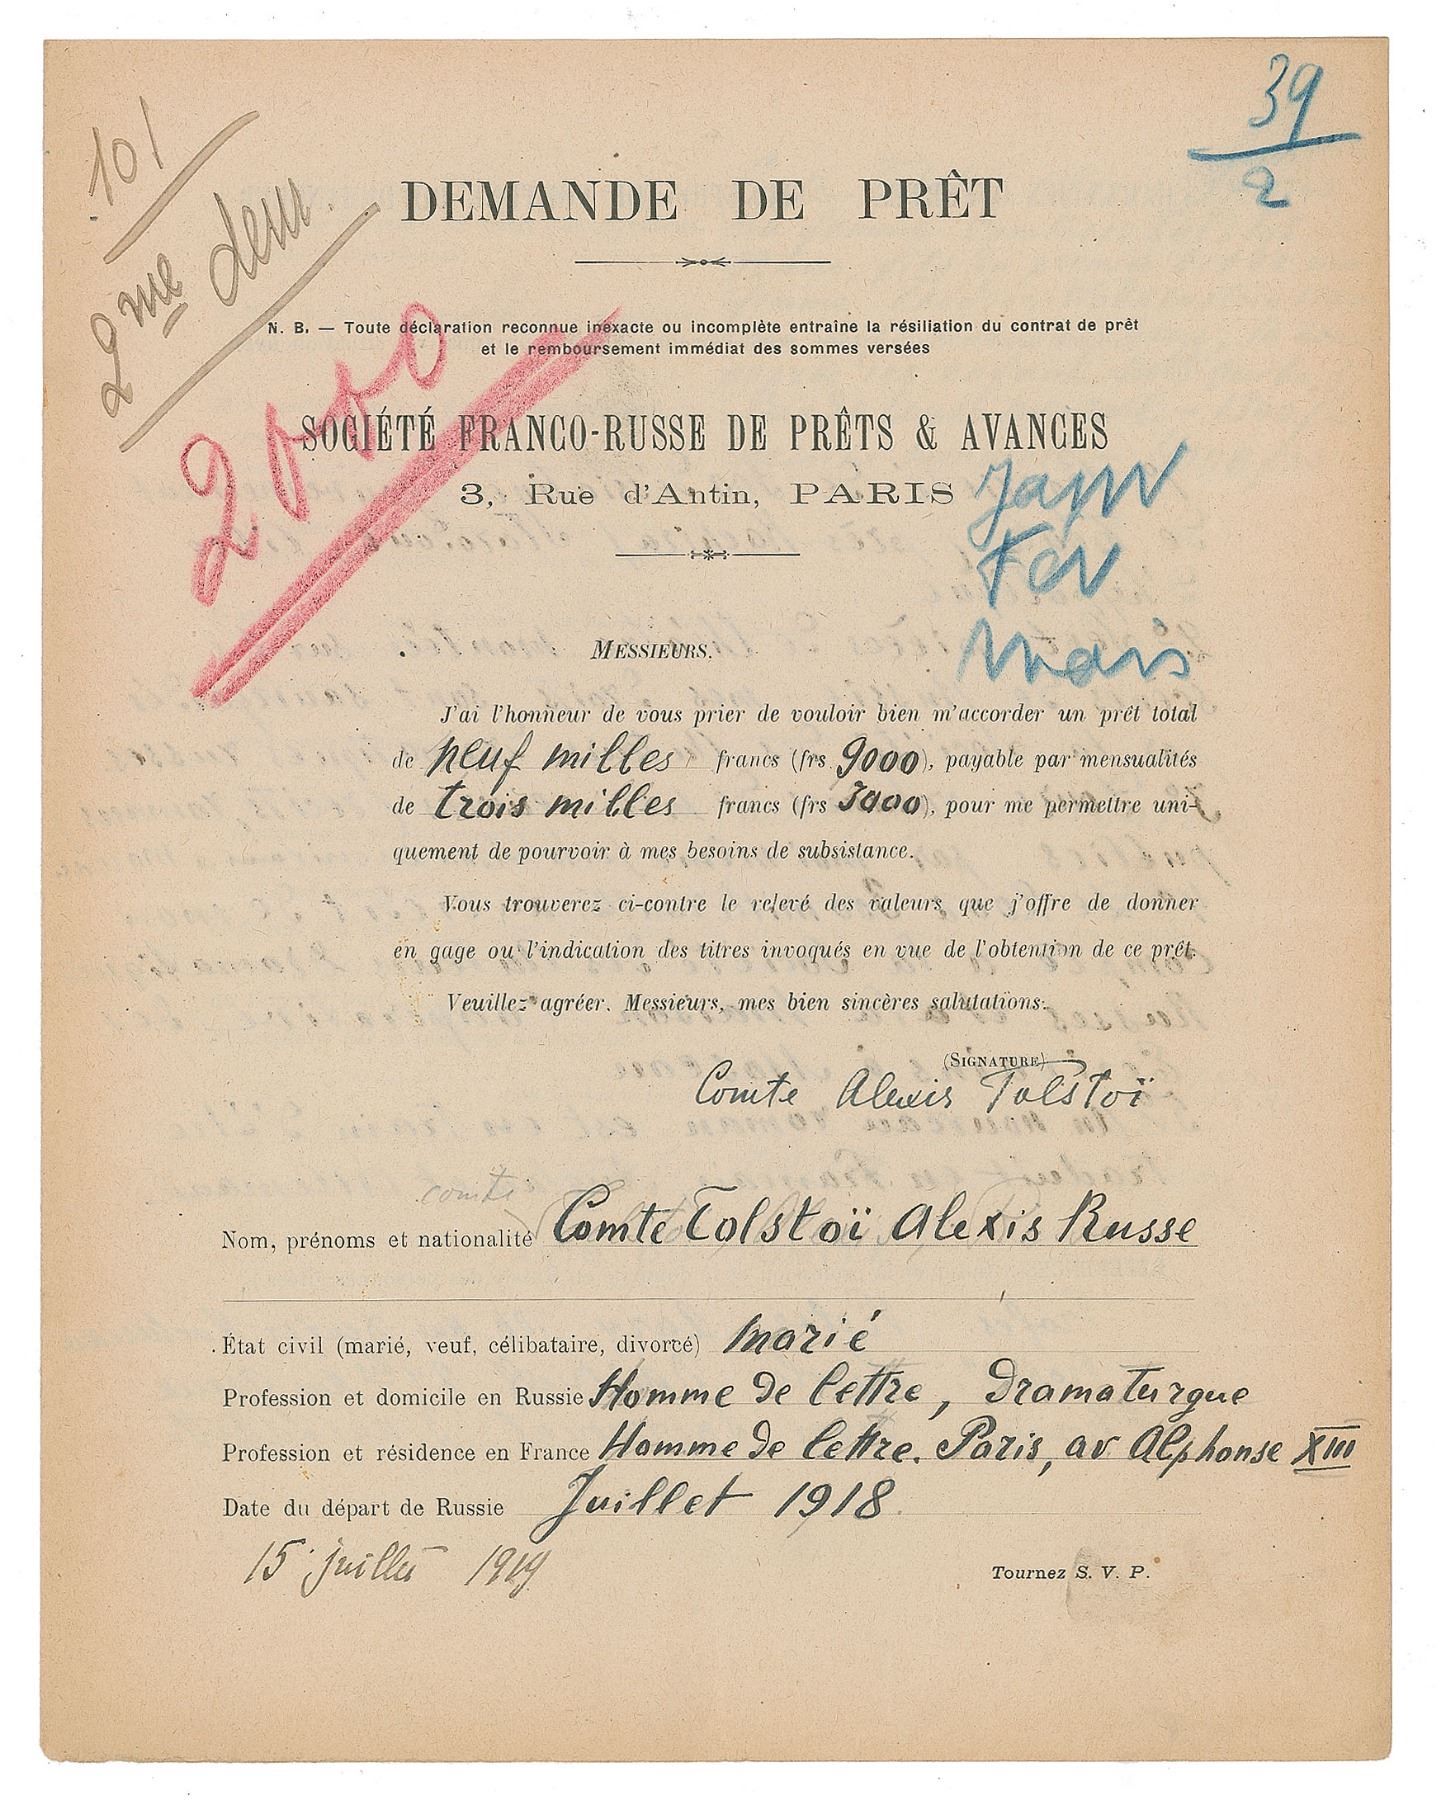 101
2me dem
39
2
DEMANDE DE PRÊT
N. B. — Toute déclaration reconnue inexacte ou incomplète entraîne la résiliation du contrat de prêt
et le remboursement immédiat des sommes versées
2000
SOCIÉTÉ FRANCO-RUSSE DE PRÊTS & AVANCES
3, Rue d'Antin, PARIS
Janv
Fev
Mars
MESSIEURS.
J'ai l'honneur de vous prier de vouloir bien m'accorder un prêt total
de neuf milles francs (frs 9000), payable par mensualités
de trois milles francs (frs 3000), pour me permettre uni-
quement de pourvoir à mes besoins de subsistance.
Vous trouverez ci-contre le relevé des valeurs que j'offre de donner
en gage ou l'indication des titres invoqués en vue de l'obtention de ce prêt.
Veuillez agréer, Messieurs, mes bien sincères salutations.
(SIGNATURE)
Comte Alexis Tolstoï
comte
Nom, prénoms et nationalité Comte Tolstoï Alexis Russe
État civil (marié, veuf, célibataire, divorcé) marié
Profession et domicile en Russie Homme de lettre, Dramaturgue
Profession et résidence en France Homme de lettre. Paris, av Alphonse XIII
Date du départ de Russie Juillet 1918
15 juillet 1919
Tournez S. V. P.